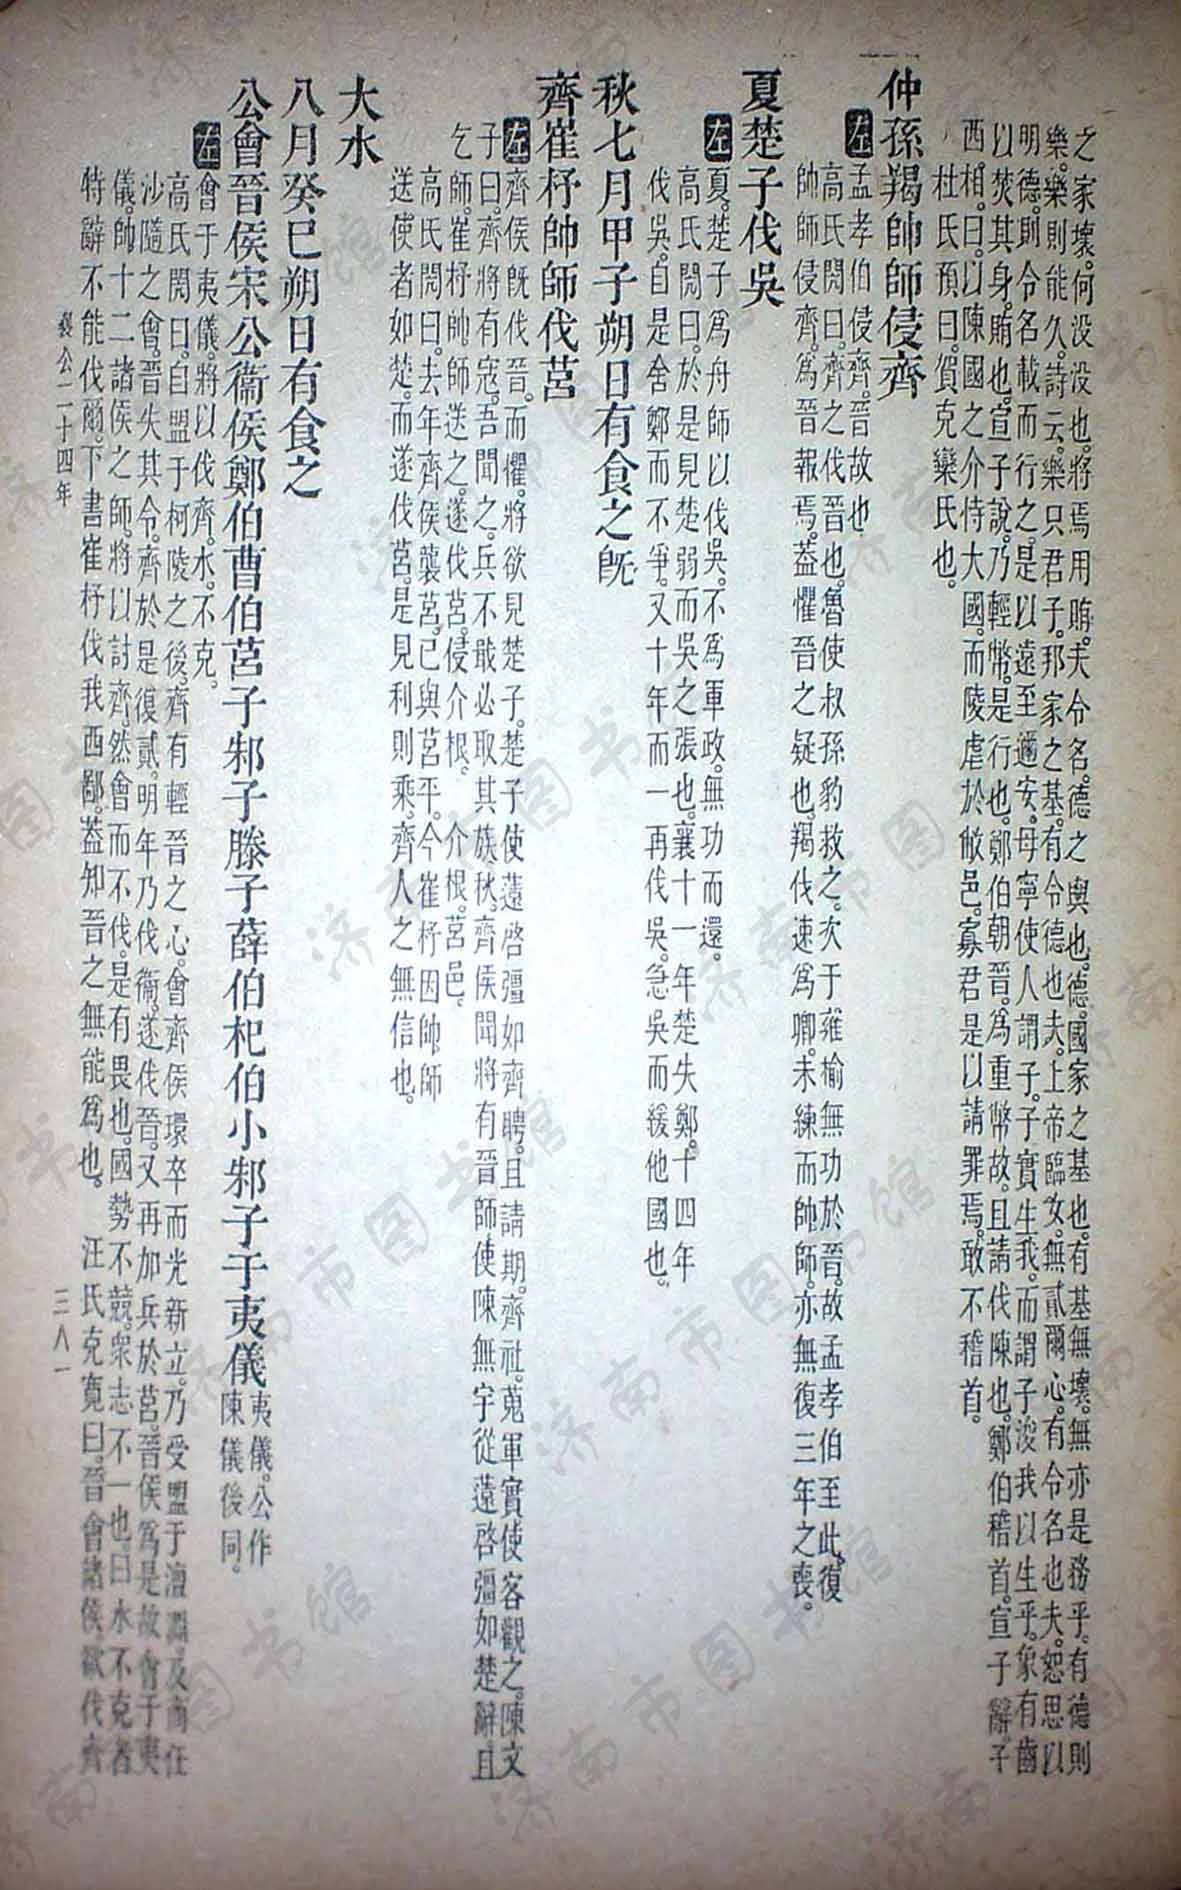 之家壞何沒沒也將焉用賄夫令名德之輿也德國家之基也有基無壞無亦是務乎有德則
樂樂則能久詩云樂只君子邦家之基有令德也夫上帝臨女無貳爾心有令名也夫恕思以
明德則令名載而行之是以遠至邇安毋寧使人謂子子實生我而謂子浚我以生乎象有齒
以焚其身賄也宣子說乃輕幣是行也鄭伯朝晉為重幣故且請伐陳也鄭伯稽首宣子辭子
西相曰以陳國之介恃大國而陵虐於敝邑寡君是以請罪焉敢不稽首。
杜氏預曰賀克欒氏也。
仲孫羯帥師侵齊
左孟孝伯侵齊晉故也
高氏閌曰齊之伐晉也魯使叔孫豹救之次于雍榆無功於晉故孟孝伯至此復
帥師侵齊為晉報焉蓋懼晉之疑也羯伐速為卿未練而帥師亦無復三年之喪。
夏楚子伐吳
左夏楚子為舟師以伐吳不為軍政無功而還。
高氏閌曰於是見楚弱而吳之張也襄十一年楚失鄭十四年
伐吳自是舍鄭而不爭又十年而一再伐吳急吳而緩他國也。
秋七月甲子朔日有食之既
齊崔杼帥師伐莒
左齊侯既伐晉而懼將欲見楚子楚子使薳啓彊如齊聘且請期齊社蒐軍實使客觀之陳文
子曰齊將有寇吾聞之兵不戢必取其族秋齊侯聞將有晉師使陳無宇從薳啓彊如楚辭且
乞師崔杼帥師送之遂伐莒侵介根。介根莒邑。
高氏閌曰去年齊侯襲莒已與莒平今崔杼因帥師
送使者如楚而遂伐莒是見利則乘齊人之無信也。
大水
八月癸巳朔日有食之
公會晉侯宋公衞侯鄭伯曹伯莒子邾子滕子薛伯杞伯小邾子于夷儀夷儀公作
陳儀後同。
左會于夷儀將以伐齊水不克。
高氏閌曰自盟于柯陵之後齊有輕晉之心會齊侯環卒而光新立乃受盟于澶淵及商任
沙隨之會晉失其令齊於是復貳明年乃伐衞遂伐晉又再加兵於莒晉侯為是故會于夷
儀帥十二諸侯之師將以討齊然會而不伐是有畏也國勢不競衆志不一也曰水不克者
特辭不能伐爾下書崔杼伐我西鄙蓋知晉之無能為也。汪氏克寬曰晉會諸侯欲伐齊
襄公二十四年
三八一